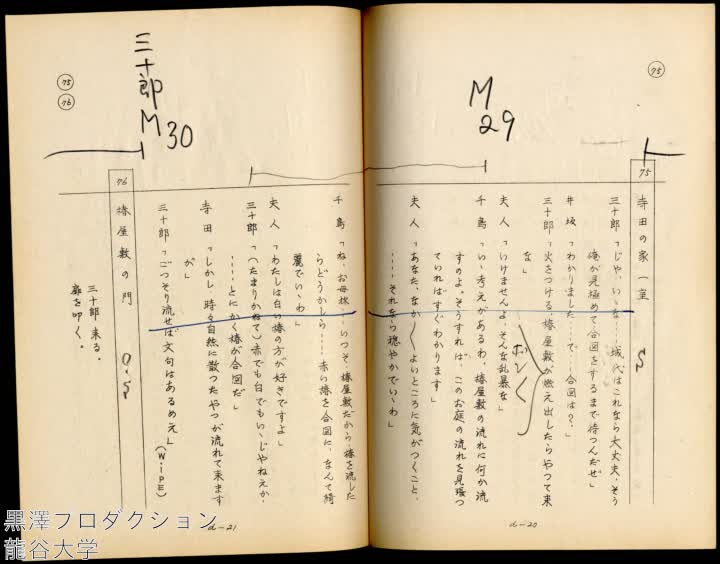 75
M
29
75
寺田の家 一室
三十郎「じゃ、いゝな……城代はこれなら大丈夫、そう
俺が見極めて合図をするまで待つんだぜ」
井坂「わかりました……で……合図は？」
三十郎「火をつける、椿屋敷が燃え出したらやって来
な」
夫人「いけませんよ、そんな乱暴な」
千鳥「いゝ考えがあるわ、椿屋敷の流れに何か流
すのよ。そうすれば、このお庭の流れを見張っ
ていればすぐわかります」
夫人「あなた、なか〳〵よいところに気がつくこと、
……それなら穏やかでいゝわ」
d-20
75
76
三十郎
M
30
千鳥「ね、お母様……いっそ椿屋敷だから椿を流した
らどうかしら……赤い椿を合図に、なんて綺
麗でいゝわ」
夫人「わたしは白い椿の方が好きですよ」
三十郎「（たまりかねて）赤でも白でもいゝじゃねえか、
……とにかく椿が合図だ」
寺田「しかし、時々自然に散ったやつが流れて来ます
が」
三十郎「ごっそり流せば文句はあるめえ」
（WIPE）
76
椿屋敷の門
三十郎来る。
扉を叩く。
d-21
黒澤プロダクション
龍谷大学